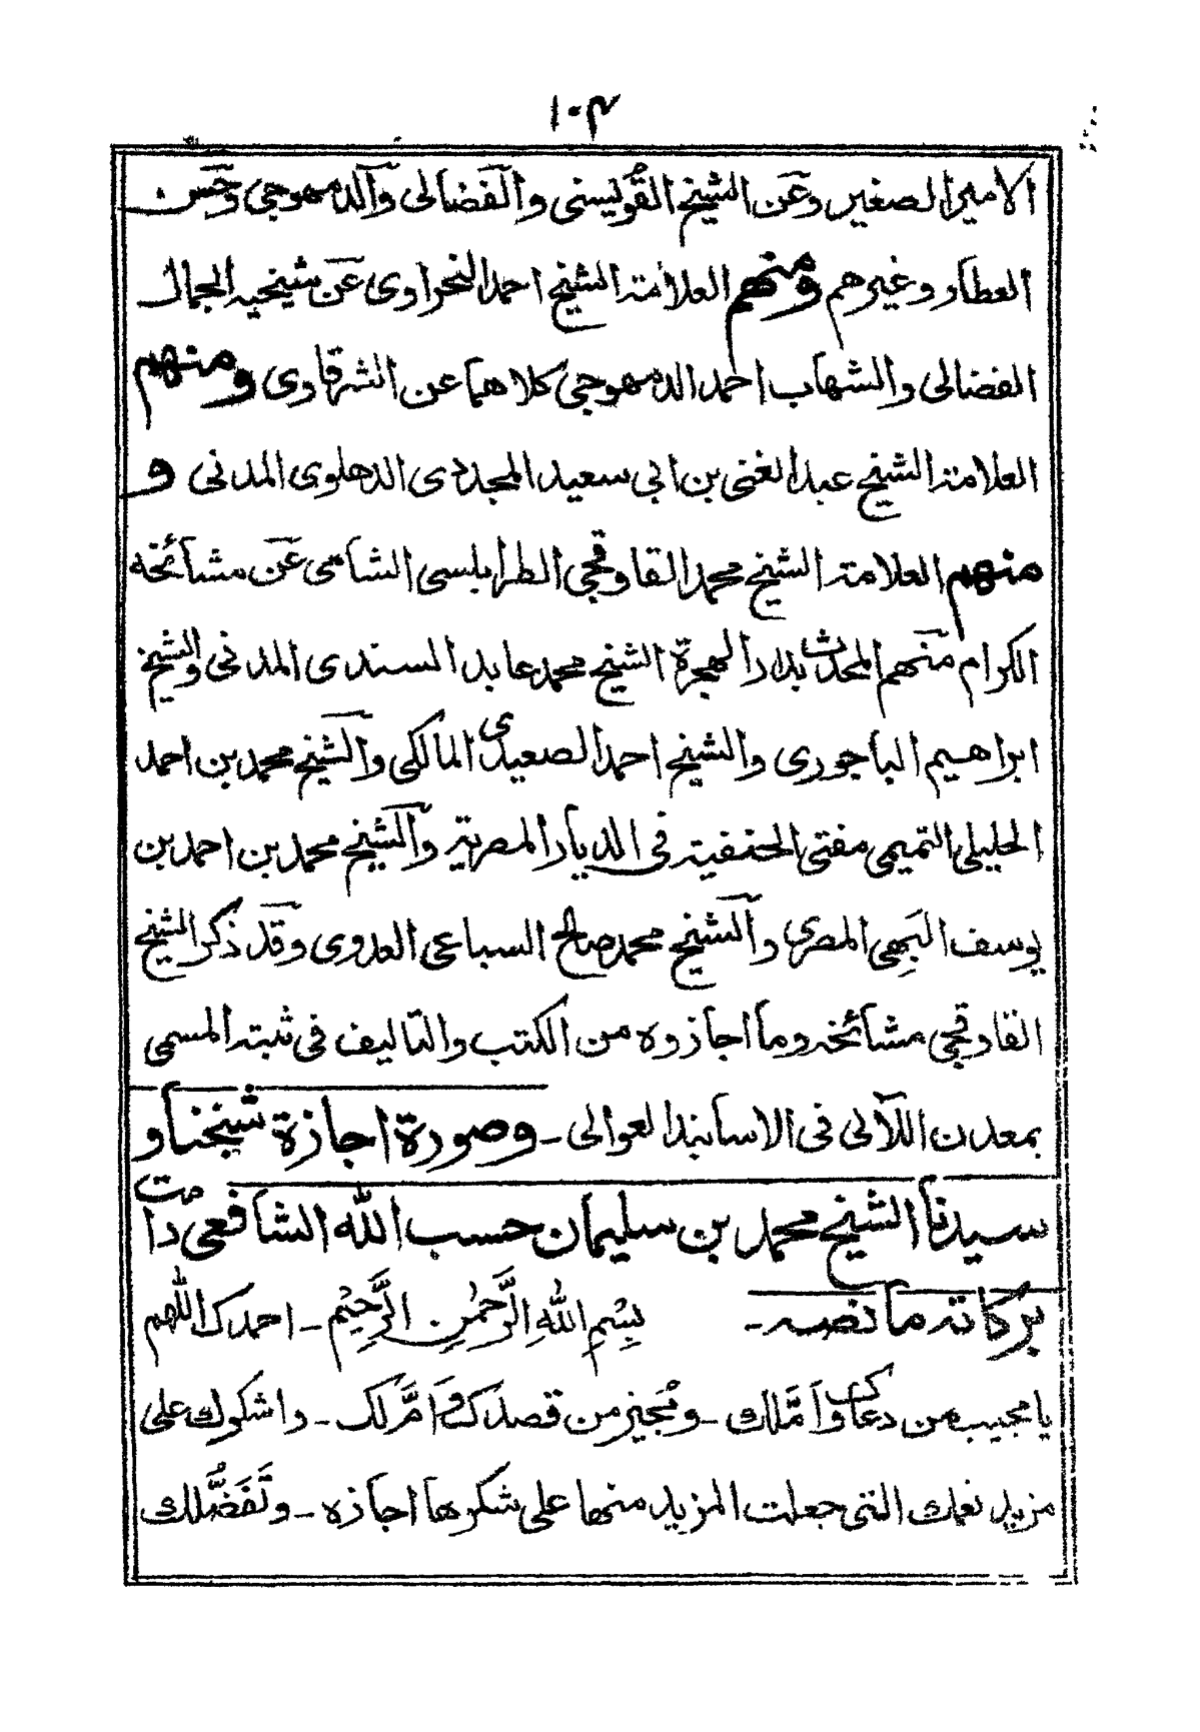 ١٠٤
الامير الصغير وعن الشيخ القُوَيسني والفضالي والدمهوجي وحسن
العطار وغيرهم ومنهم العلامة الشيخ احمد النحراوي عن شيخيه الجمال
الفضالي والشهاب احمد الدمهوجي كلاهما عن الشرقاوى ومنهم
العلامة الشيخ عبد الغني بن ابي سعيد المجددى الدهلوى المدني و
منهم العلامة الشيخ محمد القاوقجي الطرابلسى الشامى عن مشائخه
الكرام منهم المحدث بدار الهجرة الشيخ محمد عابد السندى المدنى والشيخ
ابراهيم الباجورى والشيخ احمد الصعيدى المالكى والشيخ محمد بن احمد
الخليلى التميمى مفتى الحنفية فى الديار المصرية والشيخ محمد بن احمد بن
يوسف البَهِى المصرى والشيخ محمد صالح السباعى العدوى وقد ذكر الشيخ
القاوقجى مشائخه وما اجازوه من الكتب والتاليف فى ثبته المسمى
بمعدن اللآلى فى الاسانيد العوالى ـ وصورة اجازة شيخنا و
سيدنا الشيخ محمد بن سليمان حسب الله الشافعى دامت
بركاته ما نصه ـ بِسْمِ اللهِ الرَّحمٰنِ الرَّحِيْمِ ـ احمدك اللهم
يا مجيب من دعاك وَاَمَّلك ـ ومُجيز من قصدك وَاَمَّ لك ـ واشكرك على
مزيد نعمك التى جعلت المزيد منها على شكرها اجازه ـ وتَفَضُّلك